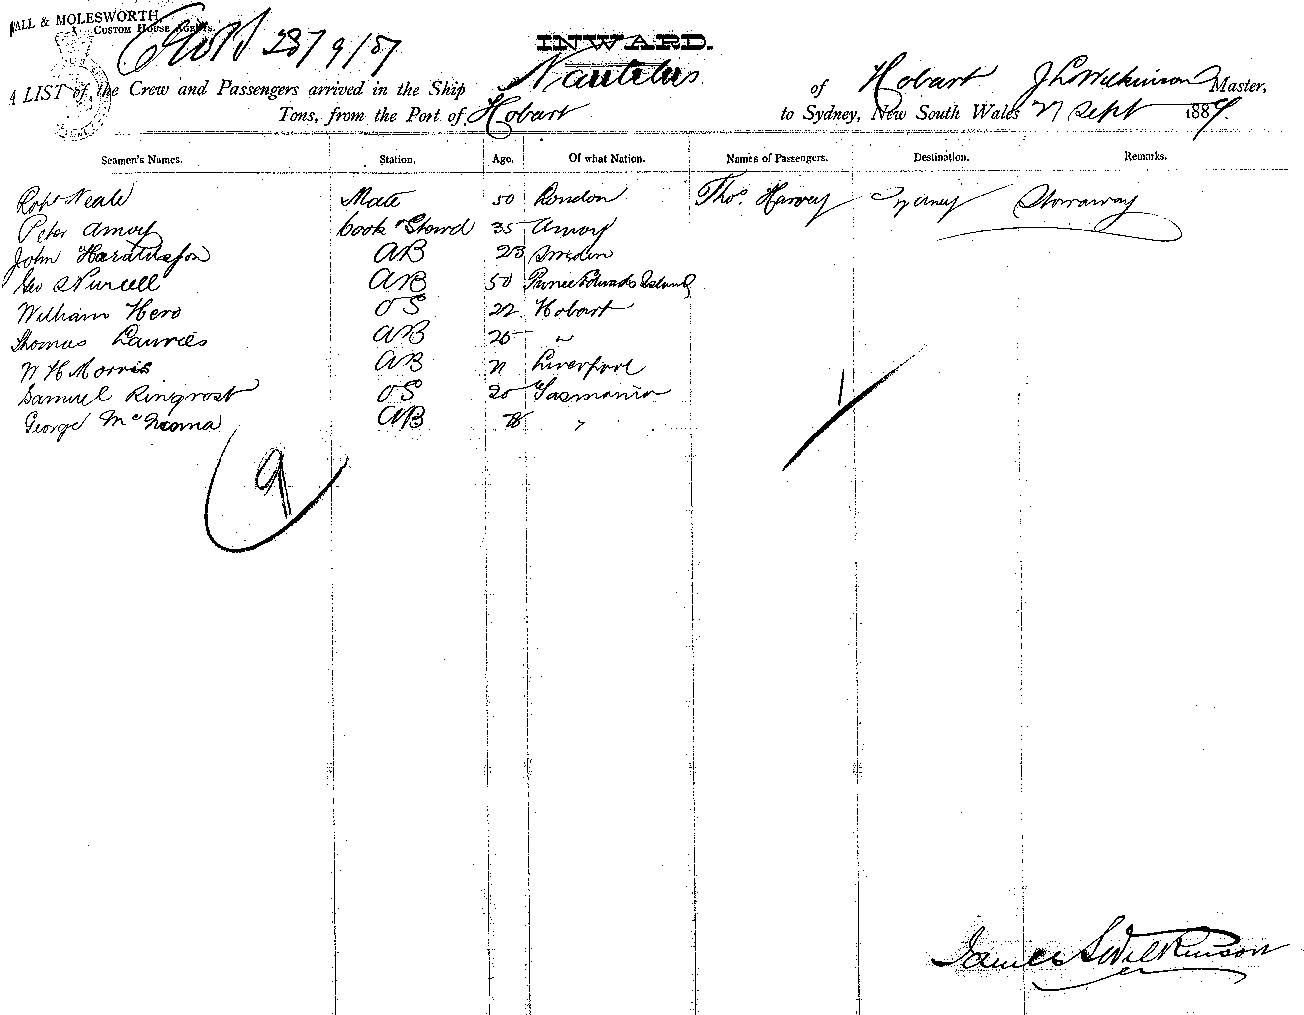 ALL & MOLESWORTH
Custom House Agents.
28/9/87
INWARD.
A LIST of the Crew and Passengers arrived in the Ship Nautilus of Hobart J S Wilkinson Master,
Tons, from the Port of Hobart to Sydney, New South Wales 27 Sept 1887.
Seamen's Names. Station. Age. Of what Nation. Names of Passengers. Destination. Remarks.
Robt Neale Mate 50 London Thos. Harvey Sydney Stowaway
Peter Amoy Cook & Stewd 35 Amoy
John AB 23 Sweden
Geo AB 50 Prince Edwards Island
William Hero OS 22 Hobart
Thomas Lauries AB 25 "
W H Morris AB 21 Liverpool
Samuel Ringrost OS 20 Tasmania
George AB "
9
1
James S Wilkinson